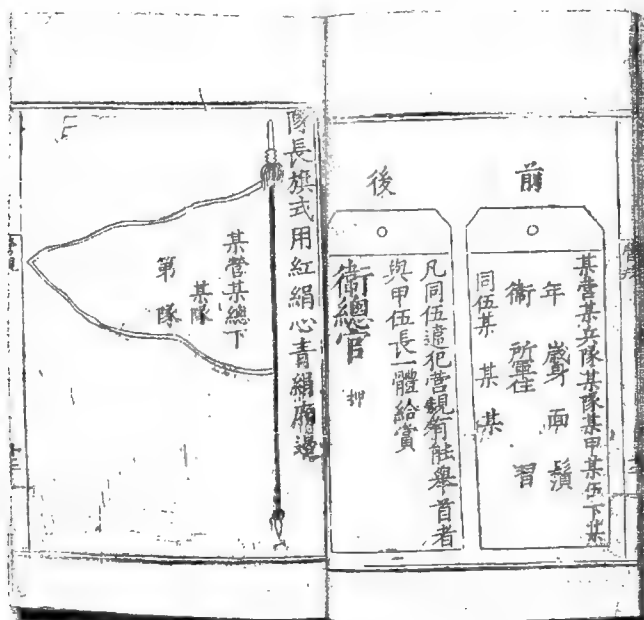 前
某營某兵隊某隊某甲某伍下某
年 歲身 面 鬚
衛 所軍住 習
同伍某 某 某
後
凡同伍違犯營規有能舉首者
與甲伍長一體給賞
衛總官 押
隊長旗式用紅絹心青絹廂邊
某營某總下
某隊
第 隊